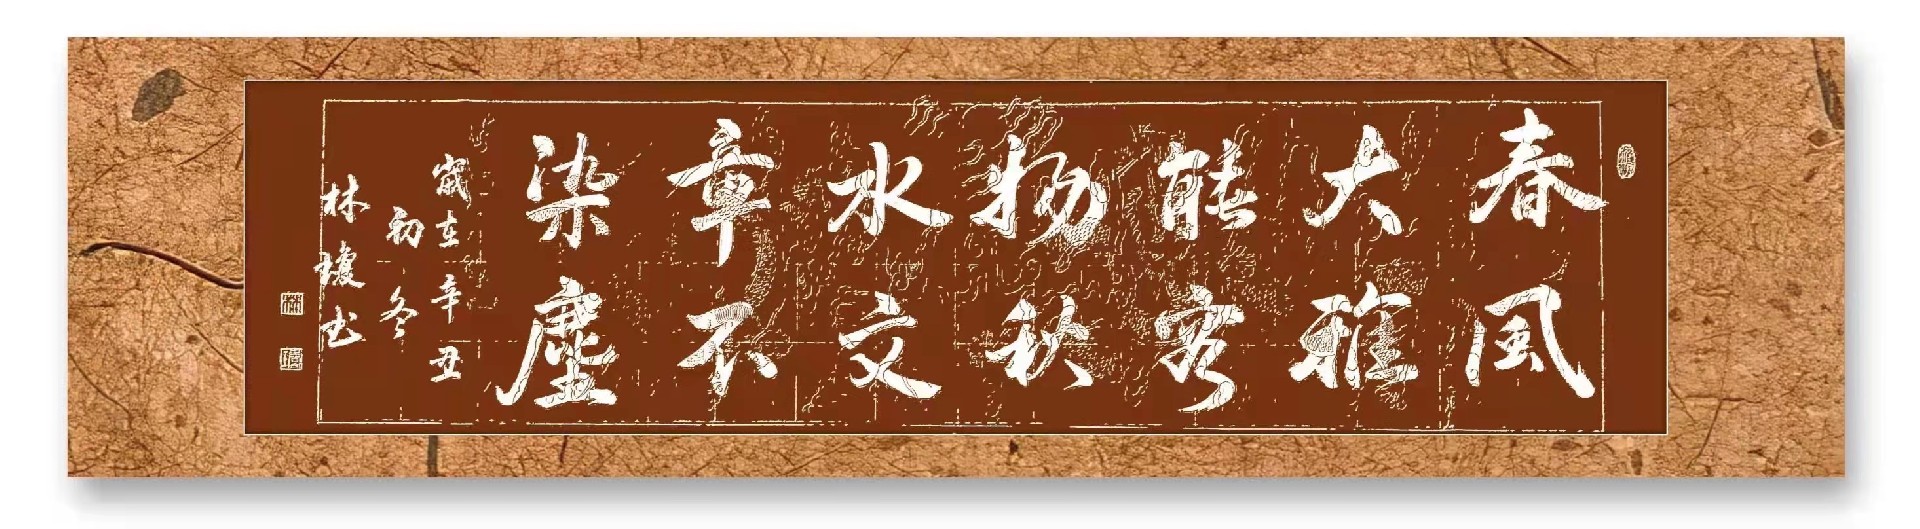 春風
大雅
能容
物秋
水文
章不
染塵
歲在辛丑
初冬
林瓊书